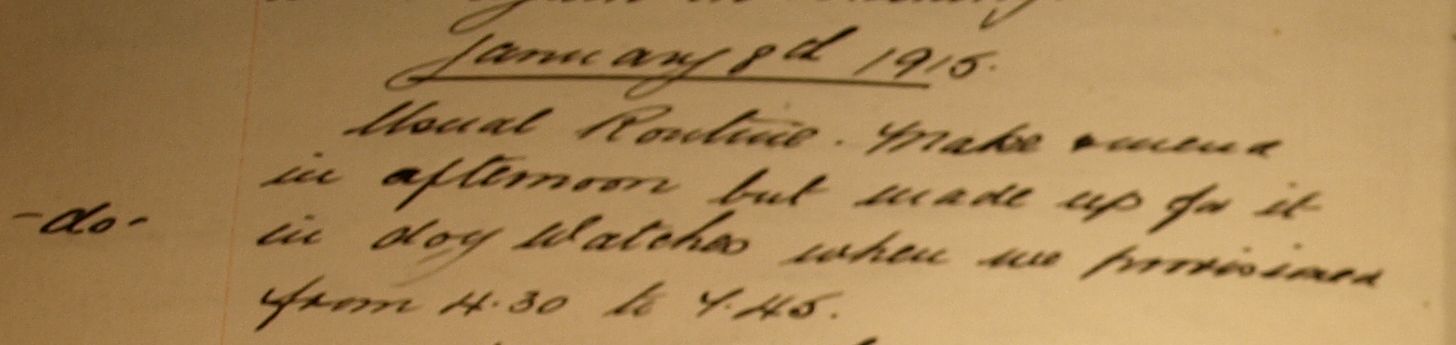 January 8d 1915.
Usual Routine. Make & mend
in afternoon but made up for it
-do-
in dog Watches when we provisioned
from 4.30 to 7.45.